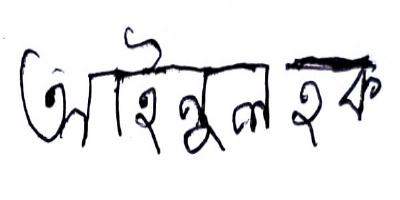 আইনুল হক